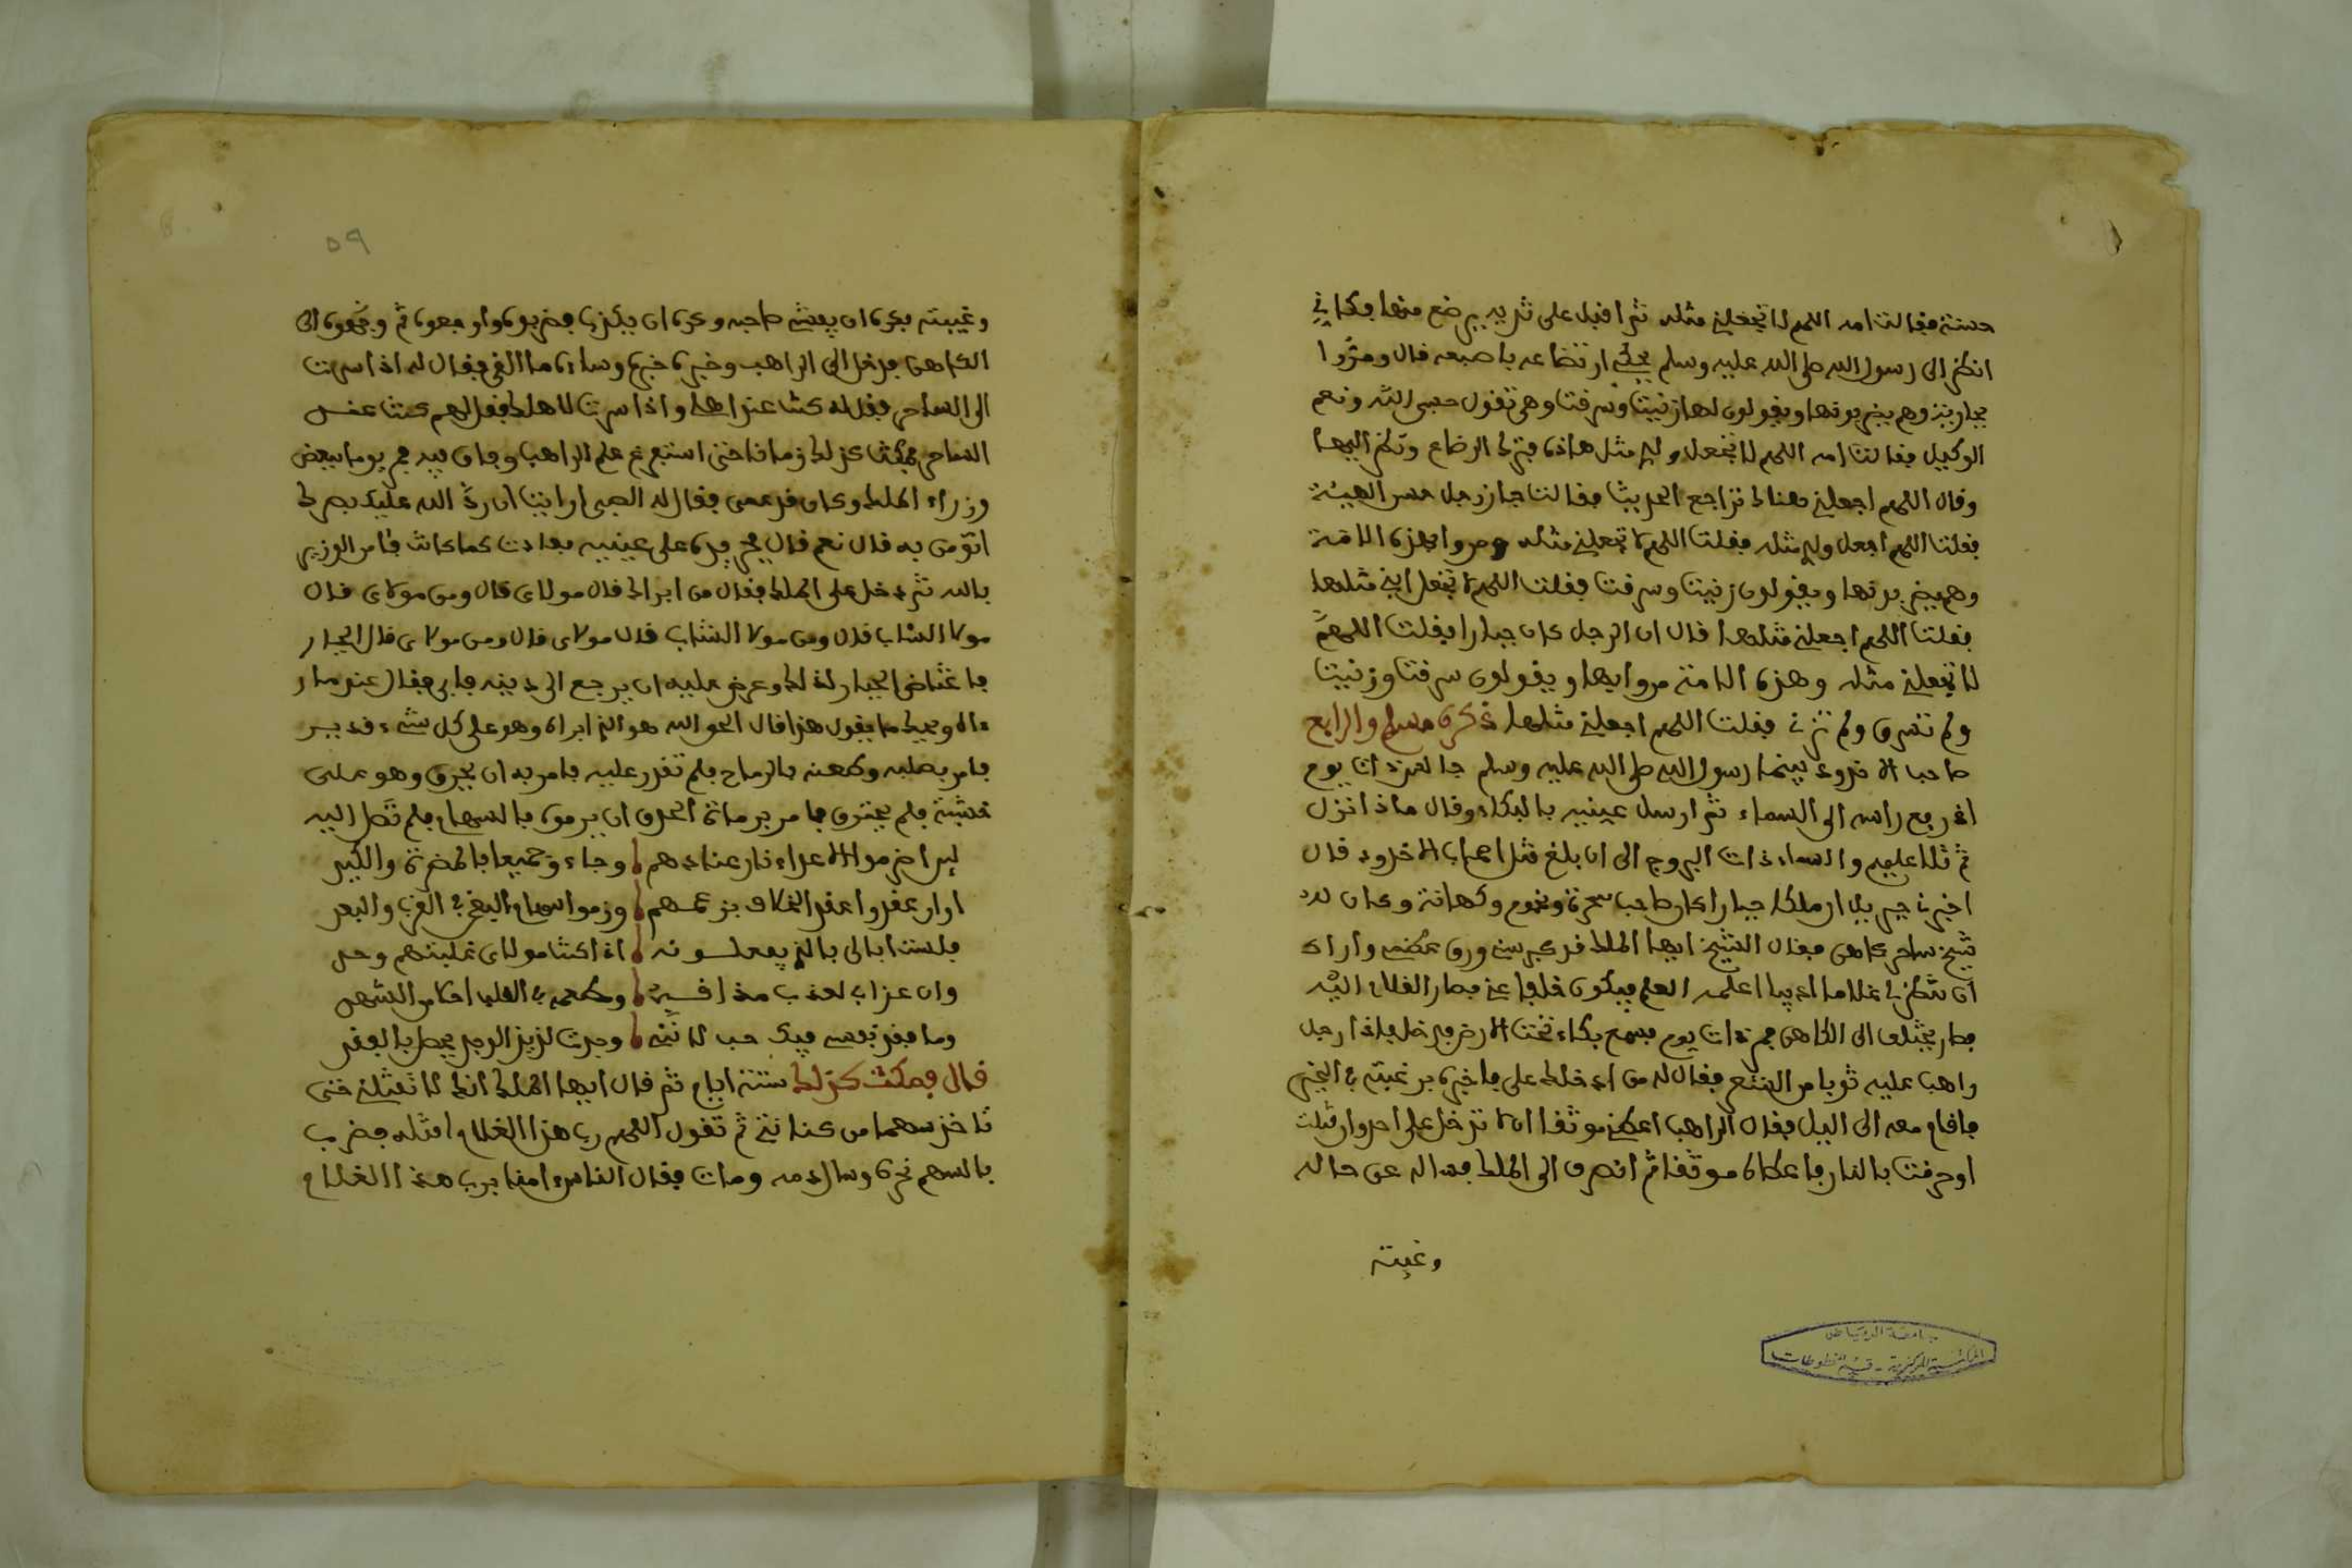 حسنة فقالت امه اللهم لا تجعلني مثله ثم اقبل على ثديه يرضع منها فكاني
انظر الى رسول الله صلى الله عليه وسلم يحكي ارتضاعه باصبعه قال ومروا
بجارية وهم يضربونها ويقولون لها زنيت وسرقت وهي تقول حسبي الله ونعم
الوكيل فقالت امه اللهم لا تجعل ولدي مثل هاذه فترك الرضاع ونظر اليها
وقال اللهم اجعلني فهناك تراجع الحديث فقالت جاز رجل حسن الهيئة
فقلت اللهم اجعل ولدي مثله فقلت اللهم لا تجعلني مثله ومروا بهذه الامة
وهم يضربونها ويقولون زنيت وسرقت فقلت اللهم لا تجعل ابني مثلها
فقلت اللهم اجعلني مثلها قال ان الرجل كان جبارا فقلت اللهم
لا تجعلني مثله وهذه الامة مروا بها ويقولون سرقت وزنيت
ولم تسرق ولم تزن فقلت اللهم اجعلني مثلها ذكره مسلم والرابع
صاحب الاخدود بينما رسول الله صلى الله عليه وسلم جالس ذات يوم
اذ رفع راسه الى السماء ثم ارسل عينيه بالبكاء وقال ماذا انزل
ثم تلا عليهم والسماء ذات البروج الى ان بلغ قتل اصحاب الاخدود قال
اخبرني جبريل ان ملكا جبارا كان صاحب سحرة ونجوم وكهانة وكان لديه
شيخ ساحر كاهن فقال الشيخ ايها الملك قد كبر سني ورق عظمي وارادى
ان تنظر لي غلاما اديبا اعلمه العلم فيكون خلفا عني فصار الغلام اليه
فصار يختلف الى الكاهن فمر ذات يوم فسمع بكاء تحت الارض فدخل فاذا رجل
راهب عليه ثوبا من الشعر فقال له من ادخلك علي فاخبره برغبته في الخير
فاقام معه الى اليل فقال الراهب اعطني موثقا ان لا تدخل علي احد وان قتلت
او حرقت بالنار فاعطاه موثقا ثم انصرف الى الملك فساله عن حاله
وغيبته
جامعة الرياض
المكتبة المركزية - قسم المخطوطات
٥٩
وغيبته فكره ان يفشي صاحبه وكره ان يكذب فضربوه واوجعوه ثم وجهوه الى
الكاهن فدخل الى الراهب وخبره خبره وساءه ما القي فقال له اذا سرت
الى الساحر فقل له كنت عند اهلي واذا سرت لاهلك فقل لهم كنت عنـد
الساحر فمكث كذلك زمانا حتى استفرغ علم الراهب وجاز فيه فمر يوما ببعض
وزراء الملك وكان قد عمي فقال له الصبي ارايت ان رد الله عليك بصرك
اتومن به قال نعم قال فمر يده على عينيه فعادت كما كانت فامن الوزير
بالله ثم دخل على الملك فقال من ابراك قال مولاي قال ومن مولاي قال
مولا الشاب قال ومن مولا الشاب قال مولاي قال ومن مولاي قال الجبار
فاغتاض الجبار لذلك وعرض عليه ان يرجع الى دينه فابى فقال عند ما ر
ءاه ويحك ما يقول هذا قال الحق الله هو الذي ابراه وهو على كل شيء قديـر
فامر بصلبه وطعنه بالرماح فلم تقدر عليه فامر به ان يحرق وهو على
خشبته فلم يحترق فامر برماة الحدق ان يرموه بالسهام فلم تصل اليه
لين اضرموا الاعداء نار عنادهم وجاءو جميعا بالمضرة والكيد
اوار عقدوا عقد الخلاف بزعمهم ورموا سهام البغي في القرب والبعد
فلست ابالي بالذي يفعلـونه اذا كنت مولاي غليتهم وحد
وان عذاب لعذب مذاقـه وطعمه في القلب احلا من الشهد
وما فقد نفسي فيك حب لا نني وجدت لذيذ الوجد يحصل بالفقد
قال فمكث كذلك ستة ايام ثم قال ايها الملك انك لا تقتلني حتى
تاخذ سهما من كنانتي ثم تقول اللهم رب هذا الغلام اقتله فضرب
بالسهم نحره وسال دمه ومات فقال الناس ءامنا برب هذا الغلام